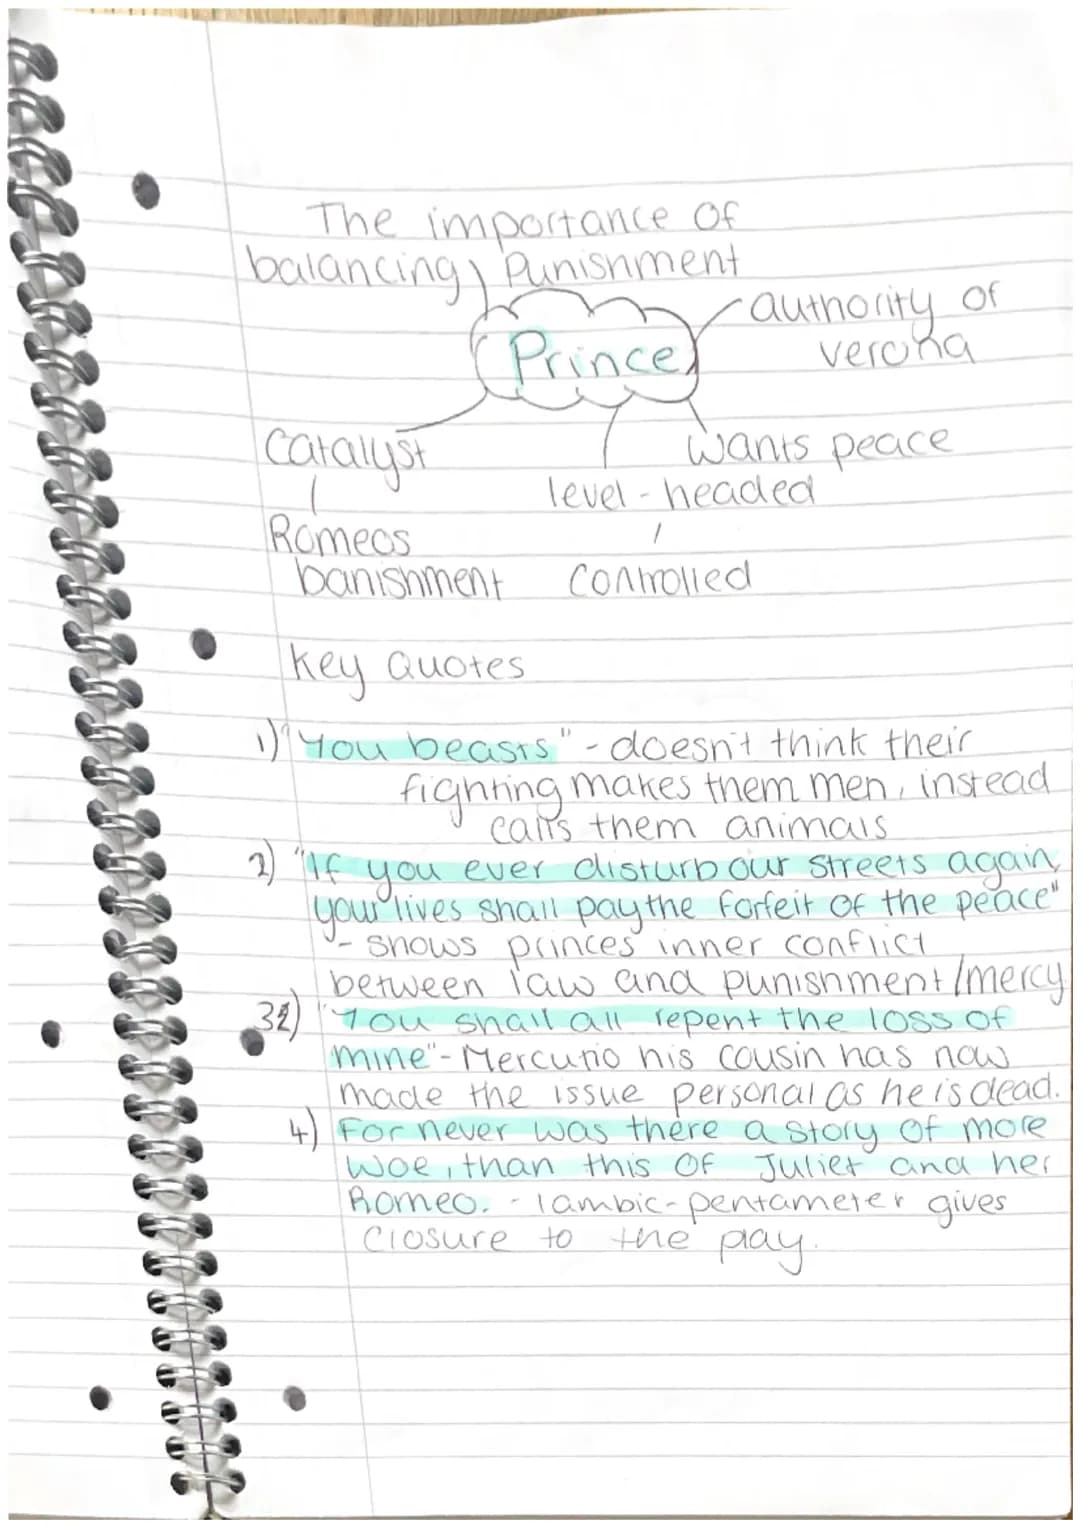 The importance of
balancing punishment
authority of
verona
Prince
Catalyst
Wants peace
level-headed
Romeos
banishment
Controlled
Key Quotes
1) "You beasts" - doesn't think their
fighting makes them men, instead
calls them animals
2) "If you ever disturb our streets again,
your lives shall pay the forfeit of the peace"
- shows princes inner conflict
between law and punishment/mercy
3) "You shall all repent the loss of
mine" - Mercutio his cousin has now
made the issue personal as he is dead.
4) For never was there a story of more
woe, than this of Juliet and her
Romeo. - Iambic-pentameter gives
closure to the play.